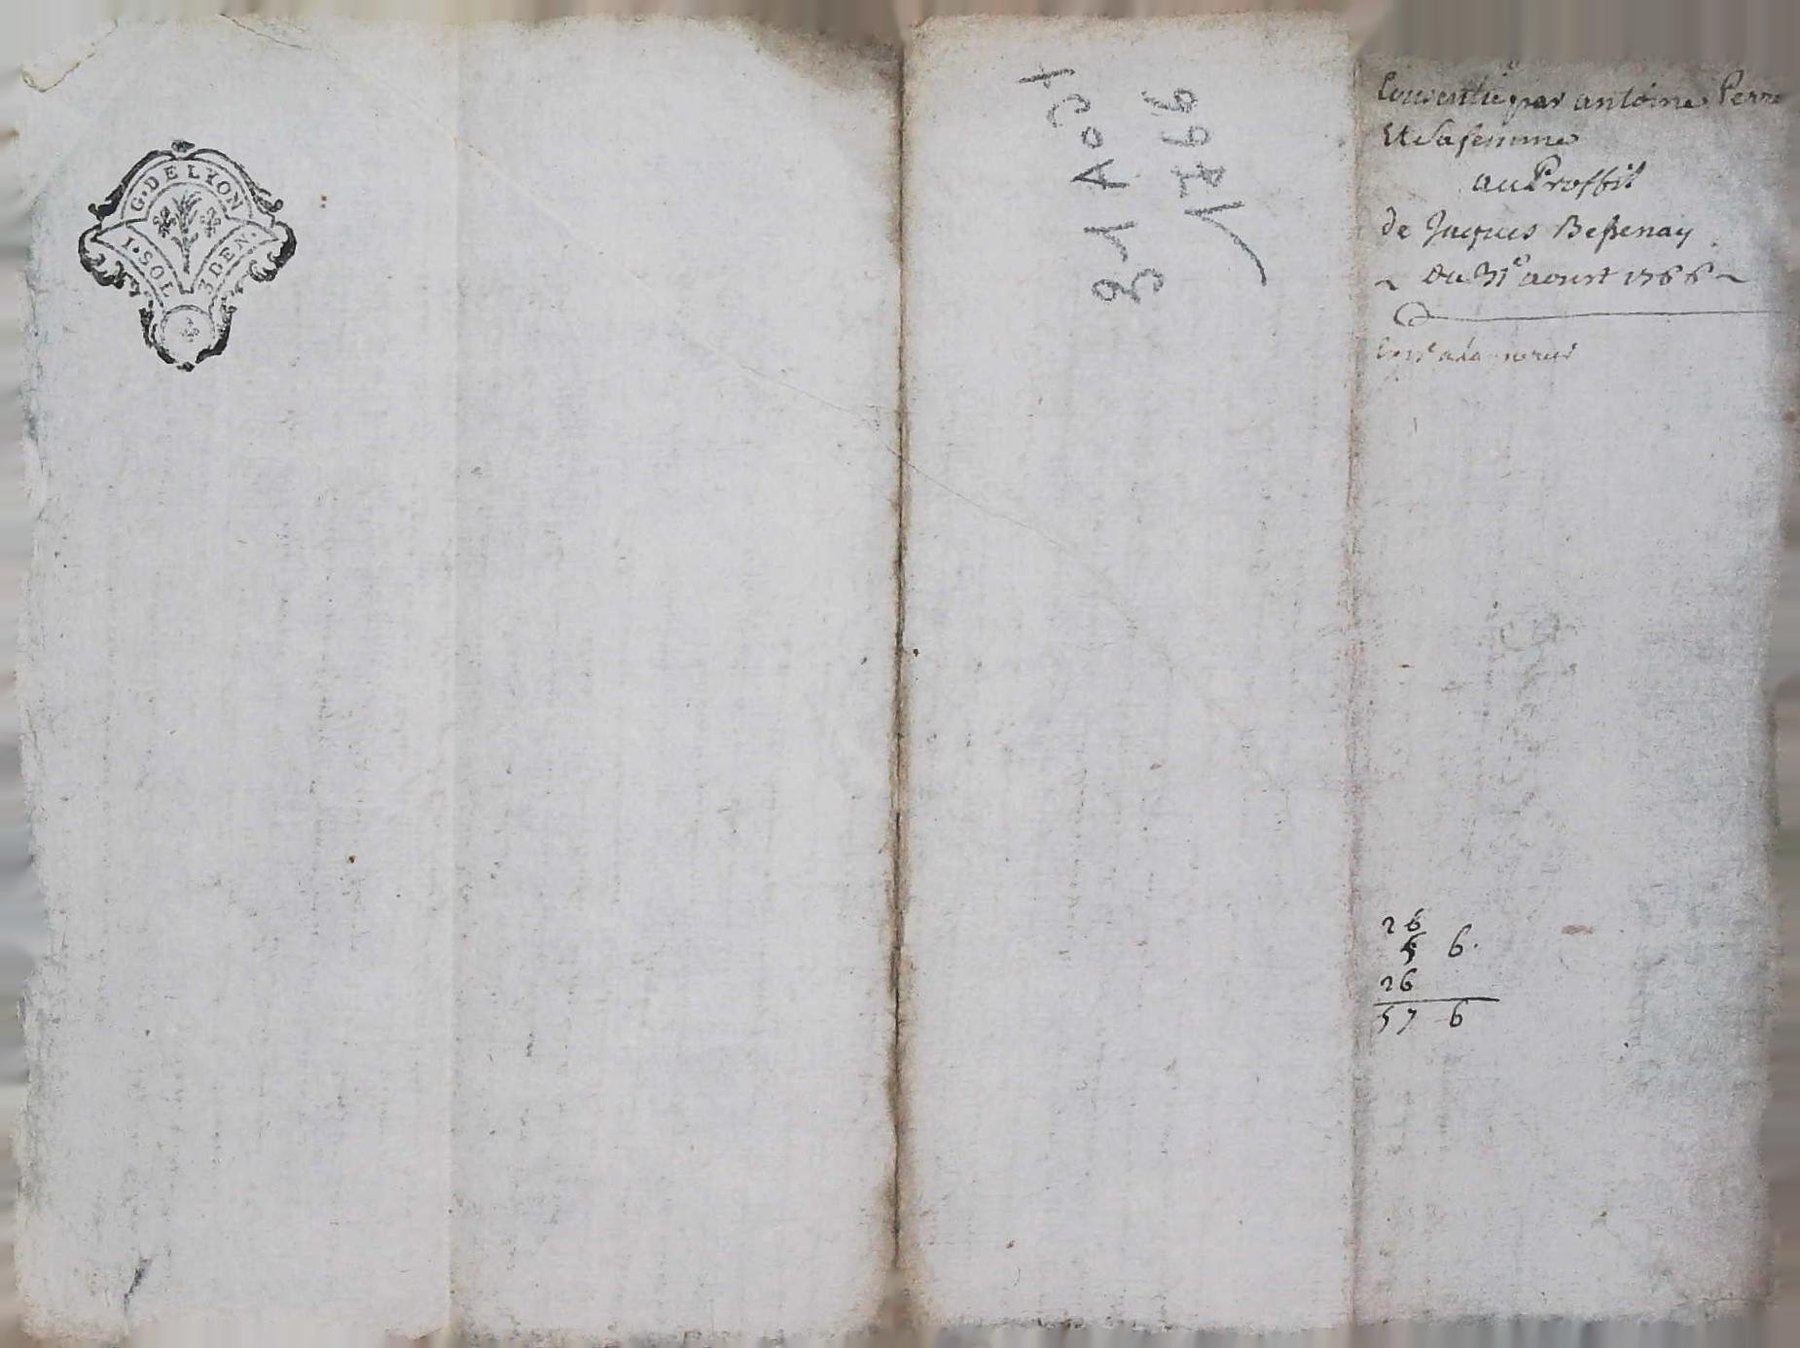 G. DE LYON
1. SOL 3 DEN.
31 Aout
1766
Consentie par antoine Perr
Et Sa femme
au Proffit
de Jacques Bessenay
~ Du 31e aoust 1766 ~
26
5 6.
26
57 6